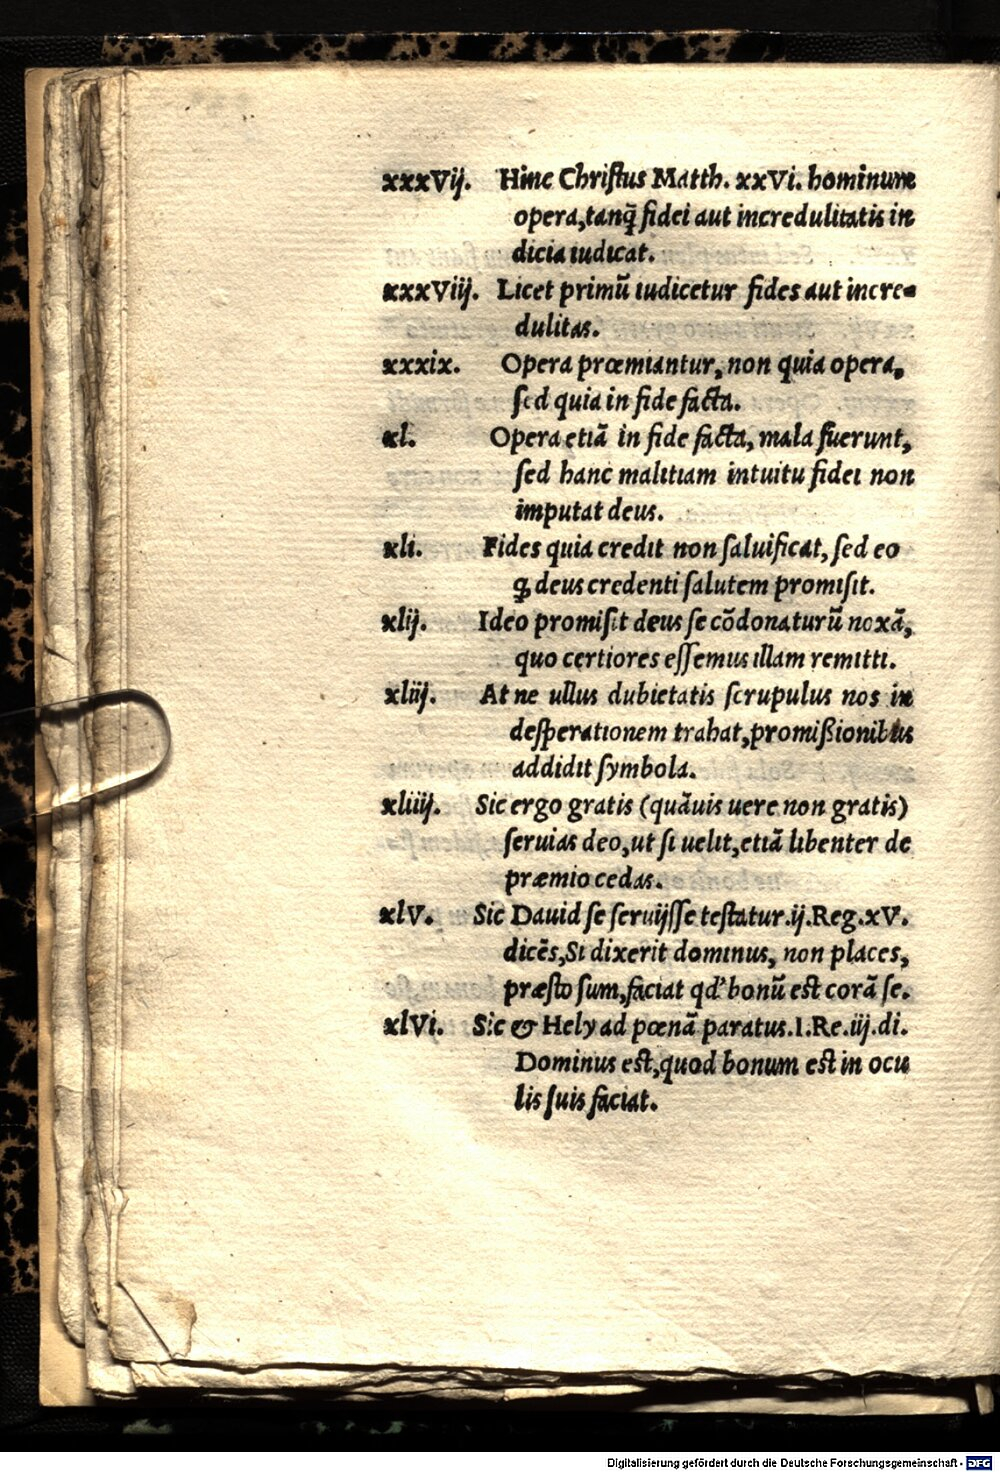 xxxVij. Hinc Chriſtus Matth. xxVi. hominum
opera,tanq̃ fidei aut incredulitatis in
dicia iudicat.
xxxViij. Licet primũ iudicetur fides aut incre-
dulitas.
xxxix. Opera prœmiantur, non quia opera,
ſed quia in fide facta.
xl. Opera etiã in fide facta, mala fuerunt,
ſed hanc malitiam intuitu fidei non
imputat deus.
xli. Fides quia credit non ſaluificat, ſed eo
ꝙ deus credenti ſalutem promiſit.
xlij. Ideo promiſit deus ſe cõdonaturũ noxã,
quo certiores eſſemus illam remitti.
xliij. At ne ullus dubietatis ſcrupulus nos in
deſperationem trahat,promißionibus
addidit ſymbola.
xliiij. Sic ergo gratis (quãuis uere non gratis)
ſeruias deo,ut ſi uelit,etiã libenter de
præmio cedas.
xlV. Sic Dauid ſe ſeruijſſe teſtatur.ij.Reg.xV.
dicẽs,Si dixerit dominus, non places,
præſto ſum,faciat qd' bonũ eſt corã ſe.
xlVi. Sic & Hely ad pœnã paratus.1.Re.iij.di.
Dominus eſt,quod bonum eſt in ocu
lis ſuis faciat.
Digitalisierung gefördert durch die Deutsche Forschungsgemeinschaft - DFG